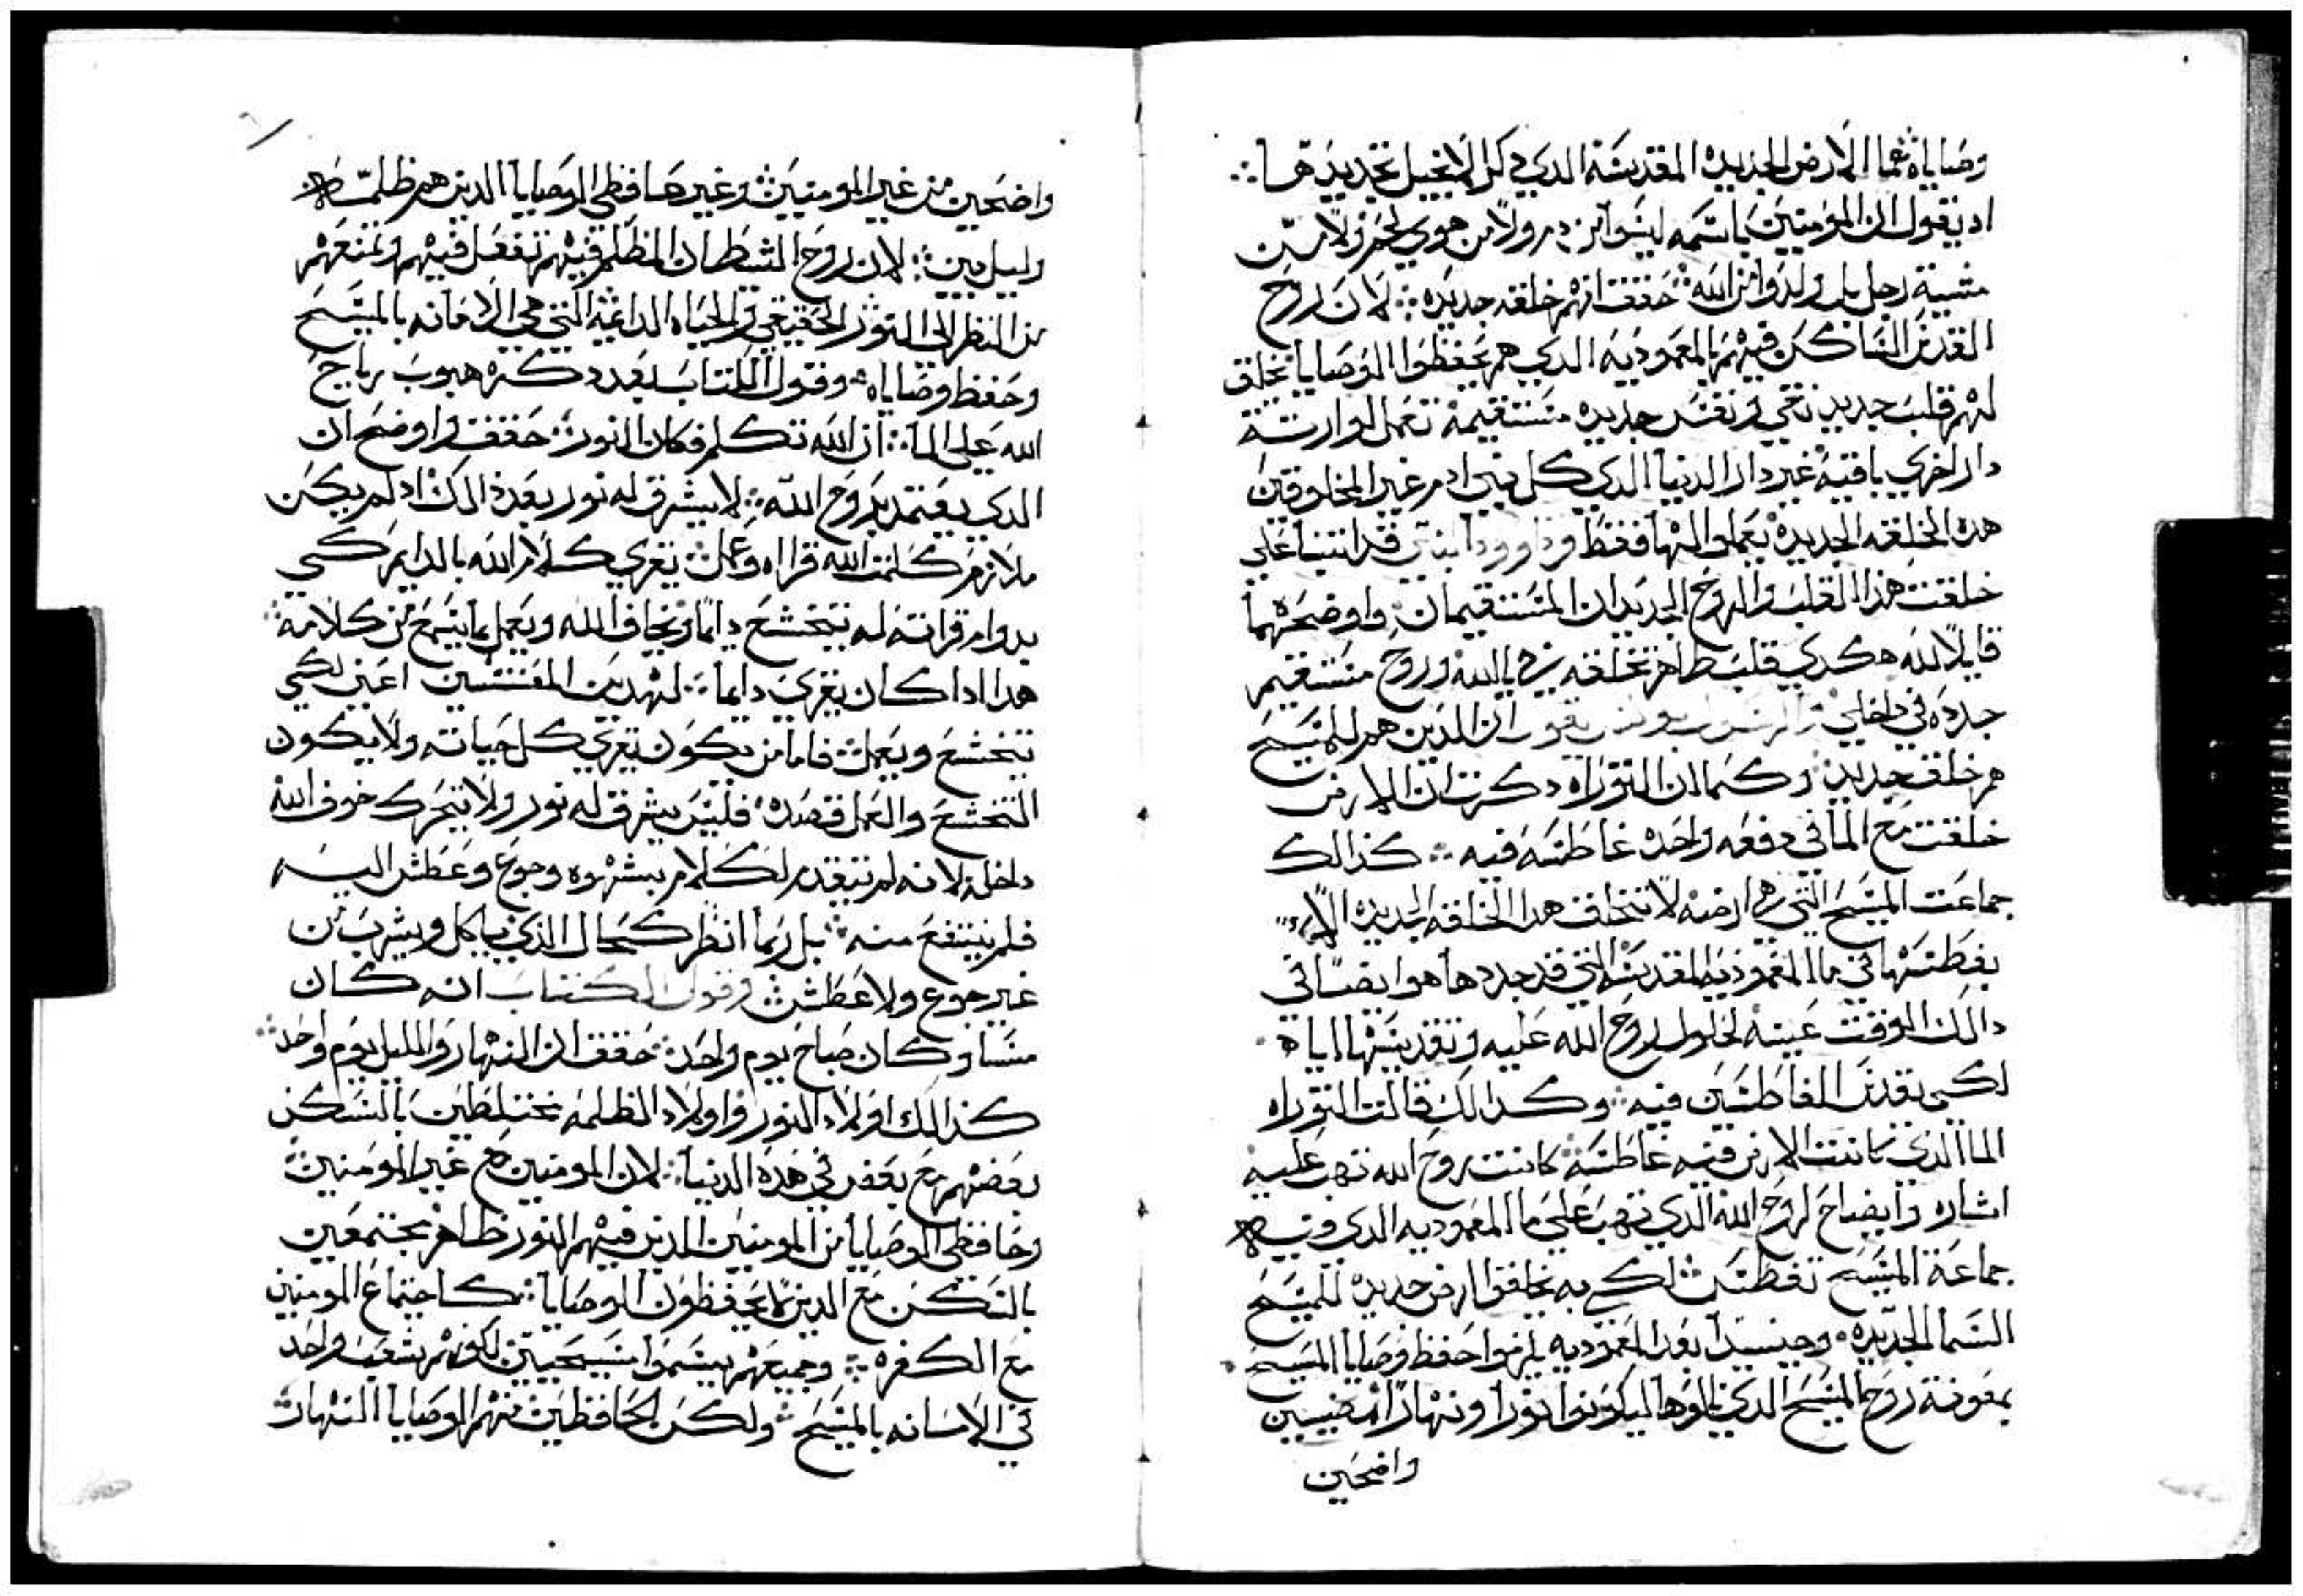 وصاياه هما الارض الجديده المقدسه الدي دكر الانجيل تجديدها
اد يقول ان المومنين باسمه ليسوا من دم ولا من هوي لحم ولا من
مشية رجل بل ولدوا من الله حقق انهم خلقه جديده لان روح
القدس الساكن فيهم بالمعموديه الدي هم يحفظوا الوصايا تخلق
لهم قلب جديد نقي ونفس جديده مستقيمة تعمل لوارثة
دار اخري باقيه غير دار الدنيا الدي كل بني ادم غير المخلوقين
هده الخلقه الجديده يعملوا لها فقط وداوود ابتنبي على
خلقت هدا القلب والروح الجديدان المستقيمان واوضحهما
قايلا لله هكدي قلب طاهر تخلقه في يا الله وروح مستقيم
جدده في داخلي والرسول بولس يقول ان الدين هم للمسيح
هم خلق جديد وكما ان التوراه دكرت ان الارض
خلقت مع الما في دفعه واحده غاطسه فيه كدالك
جماعت المسيح التي هي ارضه لا تتخلق هدا الخلقه الجديده الا
بغطسها في ما المعموديه المقدسه التي قد جددها هوا ايضا في
دالك الوقت عينه لحلول روح الله عليه وتقديسها اياه
لكي يقدس الغاطسين فيه وكدالك قالت التوراه
الما الدي كانت الارض فيه غاطسه كانت روح الله تهب عليه
اشاره وايضاح لروح الله الدي تهب علي ما المعموديه الدي فيه
جماعة المسيح تغطس لكي به يخلقوا ارض جديده للمسيح
السما الجديده وحينيد بعد المعموديه يلزموا حفظ وصايا المسيح
بمعونة روح المسيح الدي نالوها ليكونوا نورا ونهارا مضيين
واضحين
واضحين من غير المومنين وغير حافظي الوصايا الدين هم ظلمه
وليل مبين لان روح الشيطان المظلم فيهم تفعل فيهم وتمنعهم
من النظر الي النور الحقيقي والحياه الدايمه التي هي الامانه بالمسيح
وحفظ وصاياه وقول الكتاب بعد دكره هبوب رياح
الله علي الما ان الله تكلم فكان النور حقق واوضح ان
الدي يعتمد بروح الله لا يشرق له نور بعد دالك اد لم يكن
ملازم كلمت الله قراه وعمل يقري كلام الله بالدايم كي
بدوام قراته له يتخشع دايما ويخاف الله ويعمل بما يسمع من كلامه
هدا ادا كان يقري دايما لهدين المعنيين اعني لكي
يتخشع ويعمل فاما من يكون يقري كل حياته ولا يكون
التخشع والعمل قصده فليس يشرق له نور ولا يتحرك خوف الله
داخله لانه لم يتقدم لكلام بشهوه وجوع وعطش اليه
فلم ينتفع منه بل ربما انظر كحال الدي ياكل ويشرب من
غير جوع ولا عطش وقول الكتاب انه كان
مسا وكان صباح يوم واحد حقق ان النهار والليل يوم واحد
كدالك اولاد النور واولاد الظلمه مختلطين بالسكن
بعضهم مع بعض في هده الدنيا لان المومنين مع غير المومنين
وحافظي الوصايا من المومنين الدين فيهم النور ظاهر مجتمعين
بالسكن مع الدين لا يحفظون الوصايا كاجتماع المومنين
مع الكفره وجميعهم يسموا مسيحيين لكونهم شعب واحد
في الامانه بالمسيح ولكن الحافظين منهم الوصايا النهار